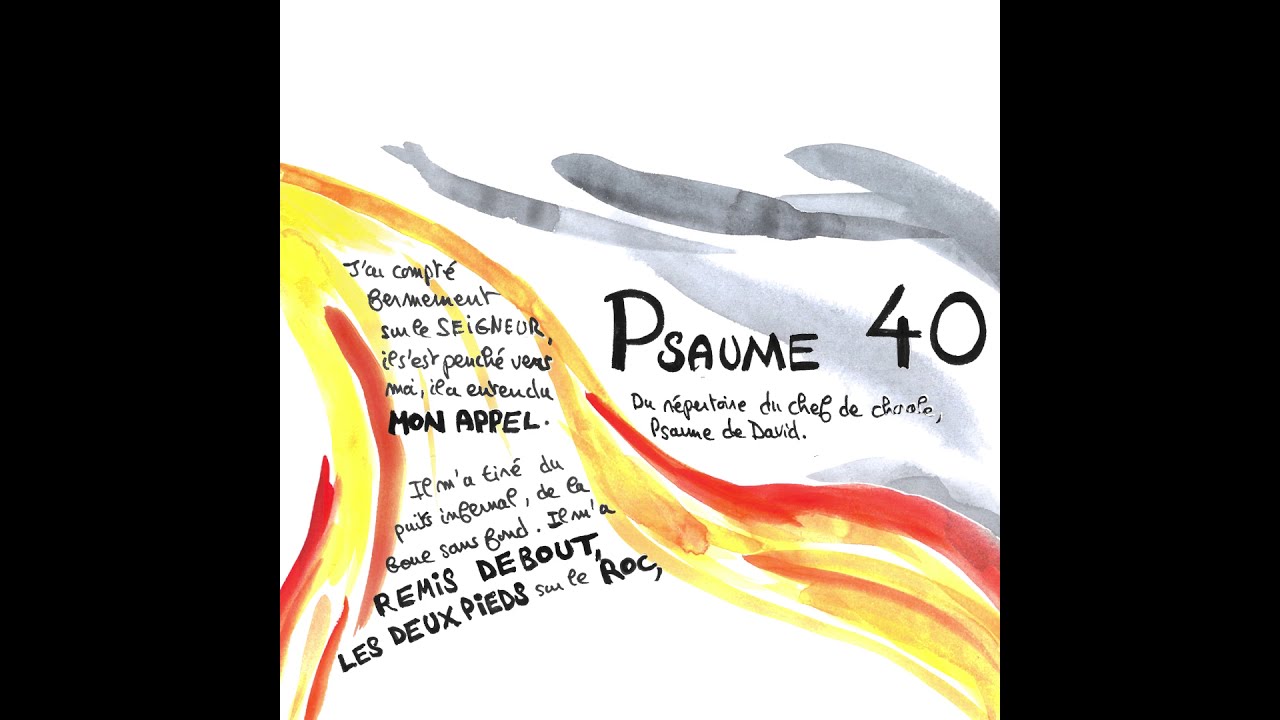 PSAUME 40
Du répertoire du chef de chorale,
Psaume de David.
J'ai compté
fermement
sur le SEIGNEUR,
il s'est penché vers
moi, il a entendu
MON APPEL.
Il m'a tiré du
puits infernal, de la
boue sans fond. Il m'a
REMIS DEBOUT,
LES DEUX PIEDS sur le ROC,